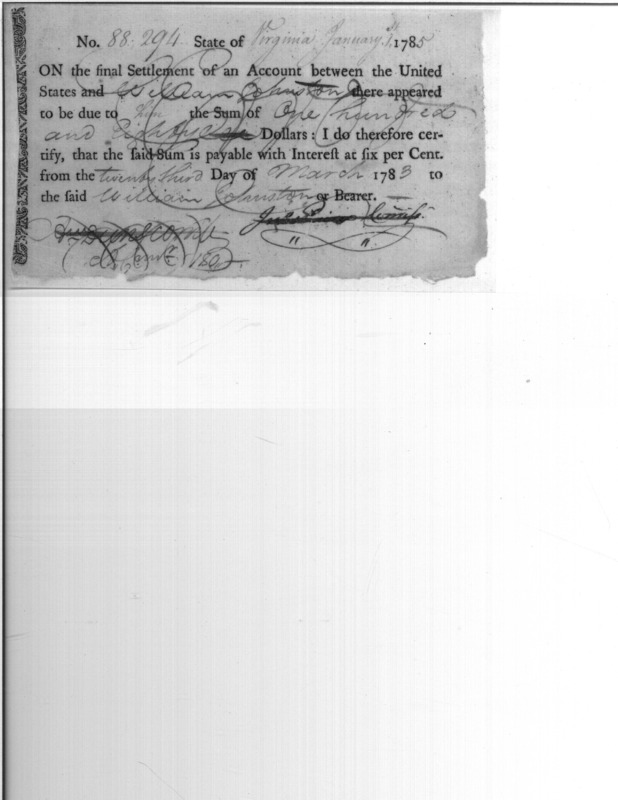 No. 88.294 State of Virginia January 1st 1785
ON the final Settlement of an Account between the United
States and William Johnston there appeared
to be due to him the Sum of One hundred
and Eighty Dollars: I do therefore cer-
tify, that the ſaid Sum is payable with Intereſt at ſix per Cent.
from the twenty third Day of March 1783 to
the ſaid William Johnston or Bearer.